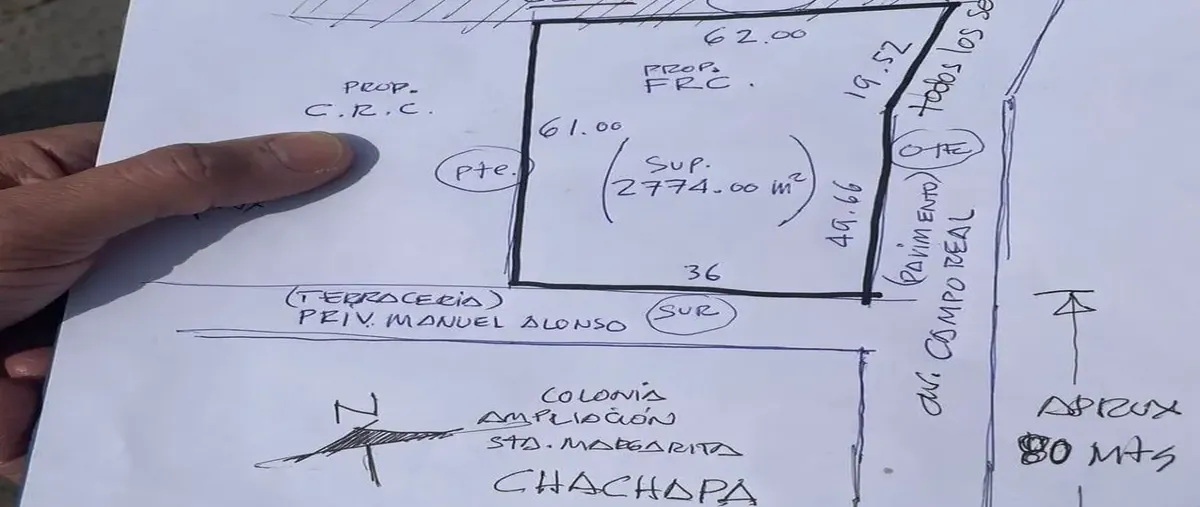 62.00
19.52
todos los se
PROP.
FRC.
PROP.
C.R.C.
61.00
Pte.
(SUP.
2774.00 m²)
49.66
OTE
(PAVIMENTO)
AV. CAMPO REAL
36
(TERRACERIA)
PRIV. MANUEL ALONSO
SUR
N
COLONIA
AMPLIACIÓN
STA. MARGARITA
CHACHAPA
APROX
80 MTS